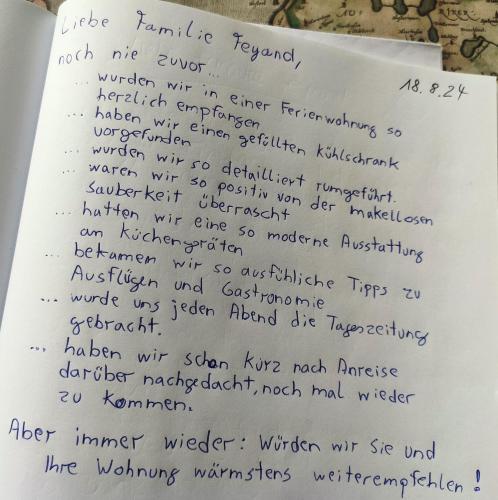 Liebe Familie Feyand,
18.8.24
noch nie zuvor...
... wurden wir in einer Ferienwohnung so
herzlich empfangen
... haben wir einen gefüllten Kühlschrank
vorgefunden
... wurden wir so detailliert rumgeführt.
... waren wir so positiv von der makellosen
Sauberkeit überrascht
... hatten wir eine so moderne Ausstattung
an Küchengeräten
... bekamen wir so ausfühliche Tipps zu
Ausflügen und Gastronomie
... wurde uns jeden Abend die Tageszeitung
gebracht.
... haben wir schon kurz nach Anreise
darüber nachgedacht, noch mal wieder
zu kommen.
Aber immer wieder: Würden wir Sie und
Ihre Wohnung wärmstens weiterempfehlen!